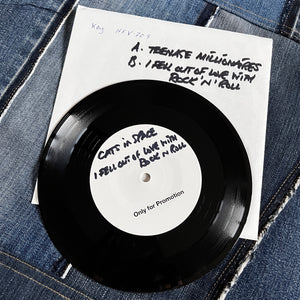 A. TEENAGE MILLIONAIRES
B. I FELL OUT OF LOVE WITH
ROCK 'N' ROLL
CATS in SPACE
I FELL OUT OF LOVE WITH
ROCK N ROLL
Only for Promotion